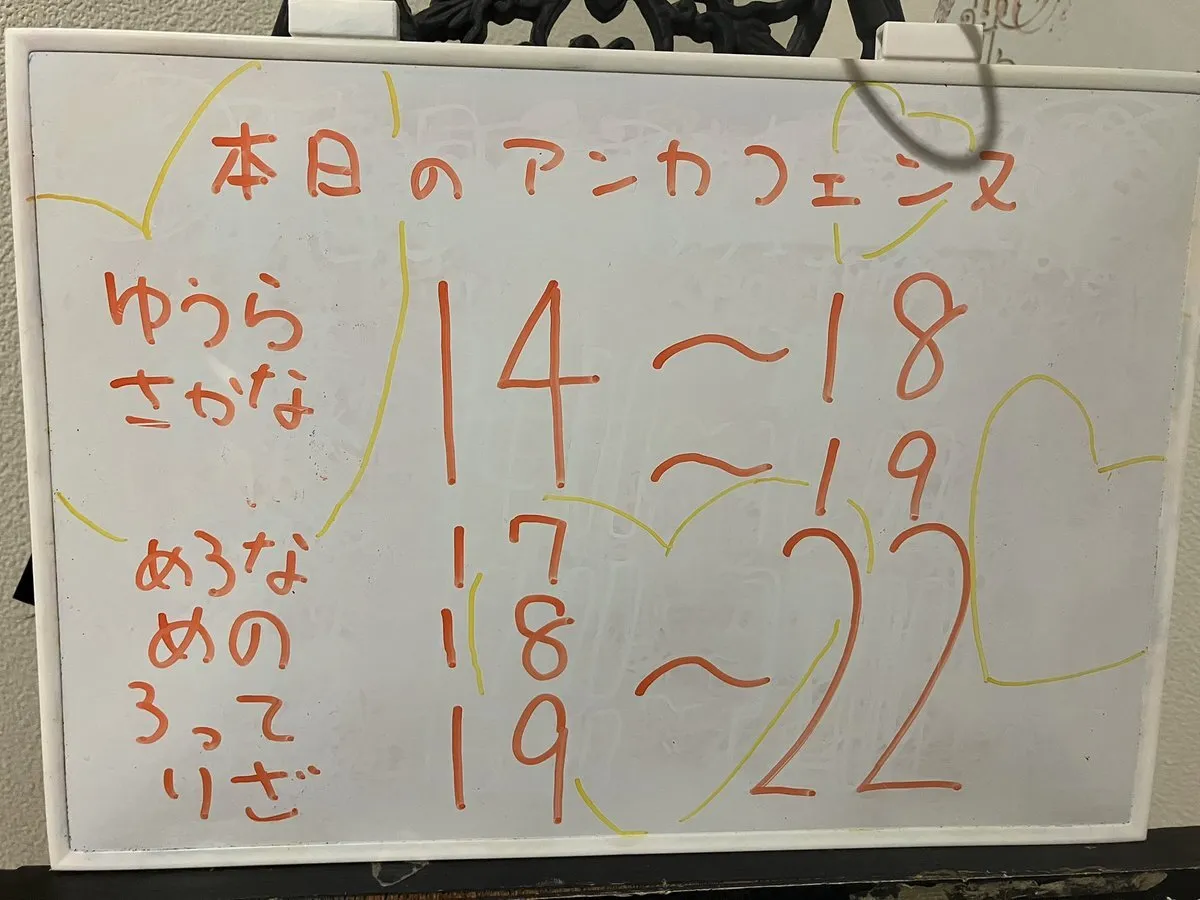 本日のアンカフェシヌ
ゆうら 14〜18
さかな 〜19
めろな 17
めの 18〜22
ろって 19
りざ